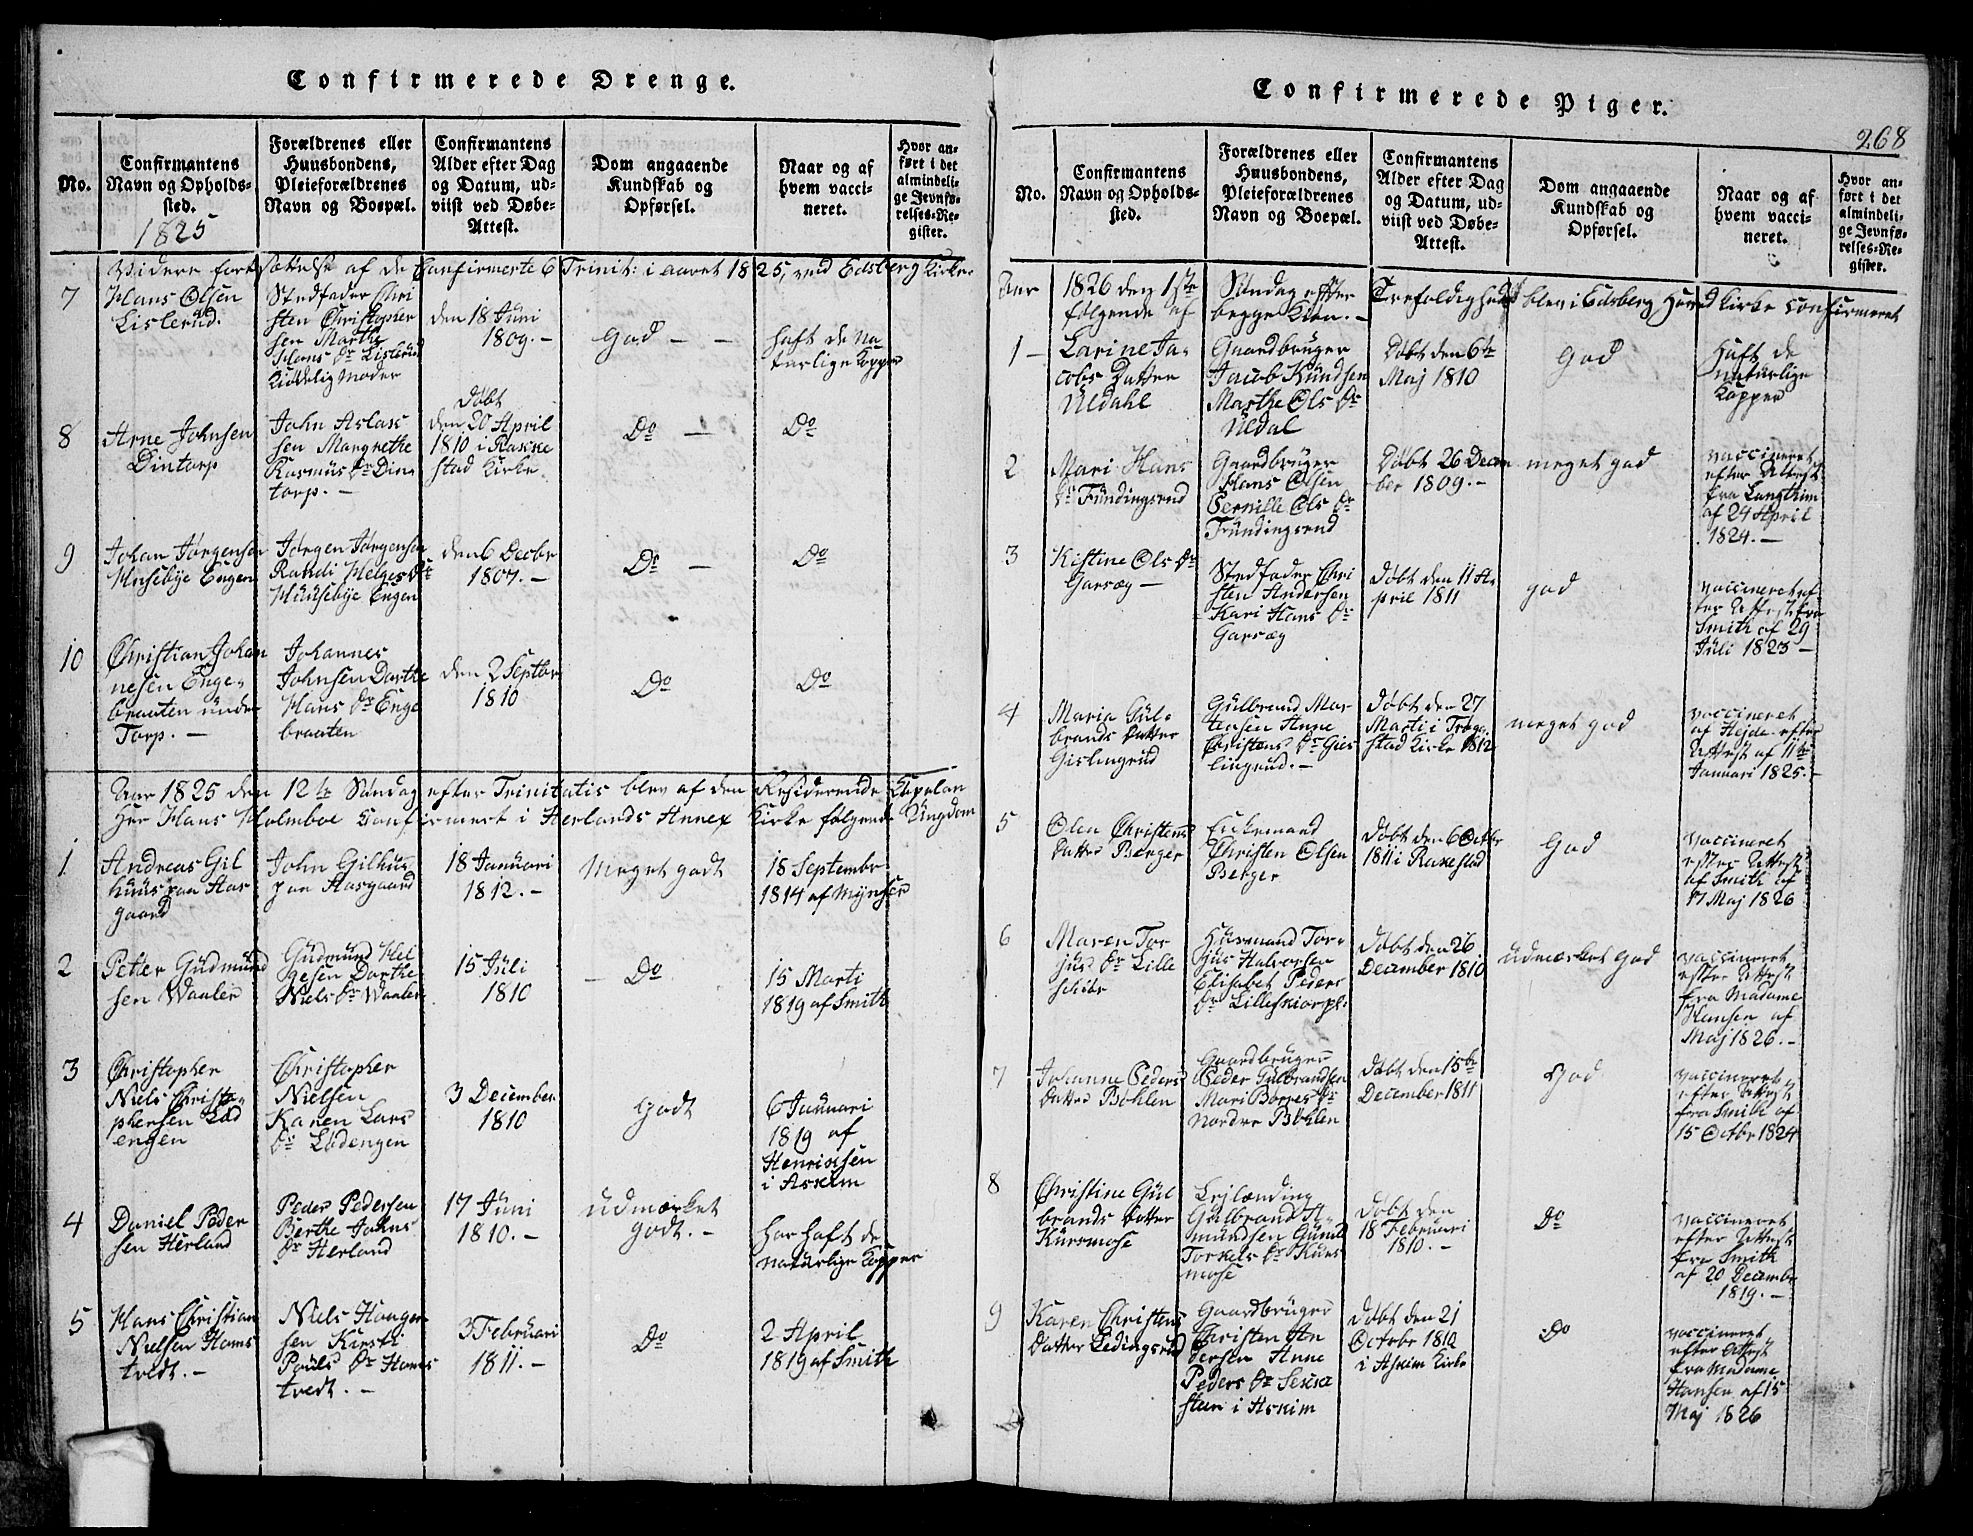 Confirmerede Drenge.
No.
Confirmantens
Navn og Opholds-
sted.
1825
Forældrenes eller
Huusbondens,
Pleieforældrenes
Navn og Boepæl.
Confirmantens
Alder efter Dag
og Datum, ud-
viist ved Døbe-
Attest.
Dom angaaende
Kundskab og
Opførsel.
Naar og af
hvem vacci-
neret.
Hvor an-
ført i det
almindeli-
ge Jevnfø-
relses-Re-
gister.
Videre fortsættelse af de Confirmerte 6 Trinit: i aaret 1825, ved Edsberg Kirke
7
Hans Olsen
Lislerud.
Stedfader Chri
sten Christopher
sen Marthe
Hans Dr Lislerud
Kiødelig Moder
den 18 Juni
1809. -
God - -
haft de Na
turlige Kopper
8
Arne Johnsen
Dintorp
John Aslak
sen Margrethe
Rasmus Dr Din
torp. -
Døbt
den 20 April
1810 i Rakke
stad Kirke
Do -
Do
9
Johan Jørgensen
Husebye Engen
Jørgen Jørgensen
Randi Helges Dr
Huusebye Engen
den 6 Decbr
1807. -
Do -
Do
10
Christian Johan
nesen Enge-
braaten under
Torp. -
Johannes
Johnsen Dorthe
Hans Dr Enge
braaten
den 2 Septbr
1810
Do
Do
Aar 1825 den 12te Søndag efter Trinitatis blev af den Residerende Capelan
Her Hans Holmboe Confirmert i Herlands Annex Kirke følgende Ungdom
1
Andreas Gil
huus paa Aas
gaard
John Gilhuus
paa Aasgaard
18 Januari
1812. -
Meget godt
18 Septembr
1814 af Mynster
2
Petter Gudmund
sen Waaler
Gudmund Hel
gesen Dorthe
Niels Dr Waaler
15 Juli
1810
- Do
15 Marti
1819 af Smith
3
Christopher
Niels Christo
phersen Lød
engen
Christopher
Nielsen
Karen Lars
Dr Lødengen
3 December
1810
Godt
6 Januari
1819 af
Henriksen
i Askim
4
Daniel Peder
sen Herland
Peder Pedersen
Berthe Johns
Dr Herland
17 Juni
1810. -
udmærket
godt. -
har haft de
naturlige Kopper
5
Hans Christian
Nielsen Homs
tvedt. -
Niels Haager
sen Kirsti
Pouls Dr Homs
tvedt. -
3 Februari
1811. -
Do
2 April
1819 af Smith
Confirmerede Piger.
268
No.
Confirmantens
Navn og Opholds-
sted.
Forældrenes eller
Huusbondens,
Pleieforældrenes
Navn og Boepæl.
Confirmantens
Alder efter Dag
og Datum, ud-
viist ved Døbe-
Attest.
Dom angaaende
Kundskab og
Opførsel.
Naar og af
hvem vacci-
neret.
Hvor an-
ført i det
almindeli-
ge Jevnfø-
relses-Re-
gister.
Aar 1826 den 1ste Søndag efter Trefoldighed blev i Edsberg Hoved Kirke confirmeret
følgende af begge Kiøn. -
1 -
Larine Ja-
cobs Datter
Uldahl
Gaardbruger
Jacob Knudsen
Marthe Ols Dr
Uldal
Døbt den 6te
Maj 1810
God
Haft de
naturlige
Kopper
2
Mari Hans
Dr Fundingsrud
Gaardbruger
Hans Olsen
Pernille Ols Dr
Fundingsrud
Døbt 26 Decem
ber 1809. -
meget god
vaccineret
efter Attest
fra Langthim
af 24 April
1824. -
3
Kistine Ols Dr
Garsæg -
Stedfader Chri
sten Andersen
Kari Hans Dr
Garsæg
Døbt den 11 A
pril 1811
god
vaccineret ef
ter Attest fra
Smith af 29
Juli 1823 -
4
Maria Gul-
brands Datter
Gislingrud
Gulbrand Mar
tensen Anne
Christens Dr Gis
lingrud. -
Døbt den 27
Marti i Trøgs
stad Kirke 1812
meget god
vaccineret
af Hejde efter
Attest af 11te
Januari 1825. -
5
Olea Christens
Datter Berger
Enkemand
Christen Olsen
Berger
Døbt den 6 Octbr
1811 i Rakestad
God
vaccineret
efter Attest
af Smith af
17 Maj 1826
6
Maren Tor
jus Dr Lille
Husmand Tor-
jus Halvorsen
Elisabet Peders
Dr Lilleskiorpl.
Døbt den 26
December 1810
udmærket god
vaccineret
efter Attest
fra Madame
Hansen af
Maj 1826. -
7
Johanne Peders
Datter Bøhlen
Gaardbruger
Peder Gulbrandsen
Mari Børres Dr
Nordre Bøhlen
Døbt den 15de
December 1811
God
vaccineret
efter Attest
fra Smith af
15 Octbr 1824
8
Christine Gul
brands Datter
Kursmose
Lejlænding
Gulbrand A-
mundsen Gunil
Torkels Dr Kurs
mose
Døbt den
18 Februari
1810. -
Do
vaccineret
efter Attest
fra Smith
af 20 Decembr
1819. -
9
Karen Christens
Datter Ledingsrud
Gaardbruger
Christen An
dersen Anne
Peders Dr
i Askim
Døbt den 21
Octobr 1810
i Askim Kirke
Do
vaccineret
efter Attest
fra Madame
Hansen af 15
Maj 1826